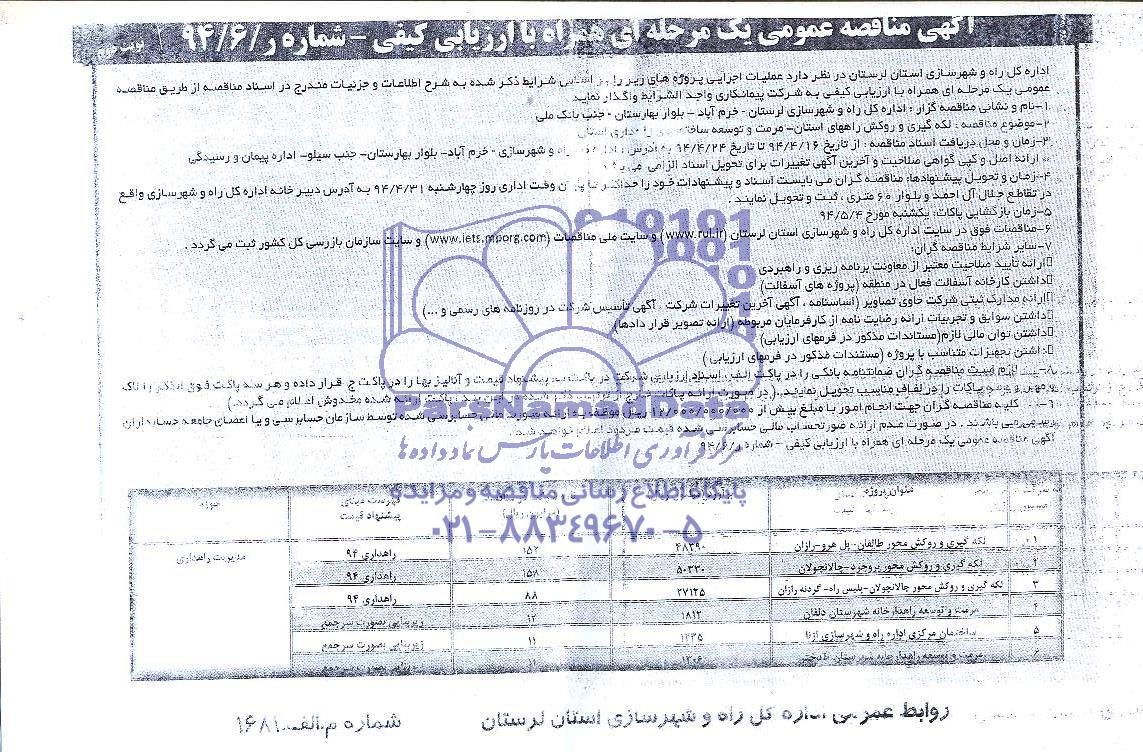 آگهی مناقصه عمومی یک مرحله ای همراه با ارزیابی کیفی - شماره ر/۹۴/۶
نوبت دوم
اداره کل راه و شهرسازی استان لرستان در نظر دارد عملیات اجرایی پروژه های زیر را بر اساس شرایط ذکر شده به شرح اطلاعات و جزئیات مندرج در اسناد مناقصه از طریق مناقصه
عمومی یک مرحله ای همراه با ارزیابی کیفی به شرکت پیمانکاری واجد الشرایط واگذار نماید
۱-نام و نشانی مناقصه گزار : اداره کل راه و شهرسازی لرستان - خرم آباد - بلوار بهارستان - جنب بانک ملی
۲-موضوع مناقصه : لکه گیری و روکش راههای استان- مرمت و توسعه
۳-زمان و محل دریافت اسناد مناقصه : از تاریخ ۹۴/۴/۱۶ تا تاریخ ۹۴/۴/۲۴ به آدرس : اداره کل راه و شهرسازی - خرم آباد- بلوار بهارستان- جنب سیلو- اداره پیمان و رسیدگی
- ارائه اصل و کپی گواهی صلاحیت و آخرین آگهی تغییرات برای تحویل اسناد الزامی می باشد
۴-زمان و تحویل پیشنهادها: مناقصه گران می بایست اسناد و پیشنهادات خود را حداکثر تا پایان وقت اداری روز چهارشنبه ۹۴/۴/۳۱ به آدرس دبیر خانه اداره کل راه و شهرسازی واقع
در تقاطع جلال آل احمد و بلوار ۶۰ متری ، ثبت و تحویل نمایند .
۵-زمان بازگشایی پاکات: یکشنبه مورخ ۹۴/۵/۴
۶-مناقصات فوق در سایت اداره کل راه و شهرسازی استان لرستان (www.rul.ir) و سایت ملی مناقصات (www.iets.mporg.com) و سایت سازمان بازرسی کل کشور ثبت می گردد .
۷-سایر شرایط مناقصه گران:
ارائه تأیید صلاحیت معتبر از معاونت برنامه ریزی و راهبردی
داشتن کارخانه آسفالت فعال در منطقه (پروژه های آسفالت)
ارائه مدارک ثبتی شرکت حاوی تصاویر (اساسنامه ، آگهی آخرین تغییرات شرکت ، آگهی تأسیس شرکت در روزنامه های رسمی و ...)
داشتن سوابق و تجربیات ارائه رضایت نامه از کارفرمایان مربوطه (ارائه تصویر قرار دادها)
داشتن توان مالی لازم(مستندات مذکور در فرمهای ارزیابی)
داشتن تجهیزات متناسب با پروژه (مستندات مذکور در فرمهای ارزیابی )
۸- لازم است مناقصه گران ضمانتنامه بانکی را در پاکت الف، اسناد ارزیابی شرکت در پاکت ب، پیشنهاد قیمت و آنالیز بها را در پاکت ج قرار داده و هر سه پاکت فوق الذکر را لاک
و مهر و پاکات را در لفاف مناسب تحویل نمایند. (در صورت ارائه پاکات پاکت ارائه شده مخدوش اعلام می گردد.)
کلیه مناقصه گران جهت انجام امور با مبلغ بیش از ۱۲/۰۰۰/۰۰۰/۰۰۰ ریال موظف به ارائه صورت مالی حسابرسی شده توسط سازمان حسابرسی و یا اعضای جامعه حسابداران
رسمی می باشند . در صورت عدم ارائه صورتحساب مالی حسابرسی شده قیمت مردود اعلام خواهد شد.
آگهی مناقصه عمومی یک مرحله ای همراه با ارزیابی کیفی - شماره ر/۹۴/۶
PARSNAMADDATA
مرکز فرآوری اطلاعات پارس نماد داده ها
پایگاه اطلاع رسانی مناقصه و مزایده
۰۲۱-۸۸۳۴۹۶۷۰-۵
عنوان پروژه فهرست مبنای پیشنهاد قیمت حوزه
۱ لکه گیری و روکش محور طالقان- پل هرو-رازان ۴۸۳۹۰ ۱۵۲ راهداری ۹۴ مدیریت راهداری
۲ لکه گیری و روکش محور بروجرد-چالانچولان ۵۰۳۳۰ ۱۵۸ راهداری ۹۴
۳ لکه گیری و روکش محور چالانچولان-پلیس راه- گردنه رازان ۲۷۱۲۵ ۸۸ راهداری ۹۴
۴ مرمت و توسعه راهدارخانه شهرستان دلفان ۱۸۱۲ ۱۲ زیربنایی بصورت سرجمع
۵ ساختمان مرکزی اداره راه و شهرسازی ازنا ۱۲۳۵ ۱۱ زیربنایی بصورت سرجمع
۶ مرمت و توسعه راهدارخانه شهرستان ۱۲۰۶ ۱۱ زیربنایی بصورت سرجمع
روابط عمومی اداره کل راه و شهرسازی استان لرستان
شماره م.الف.۱۶۸۱